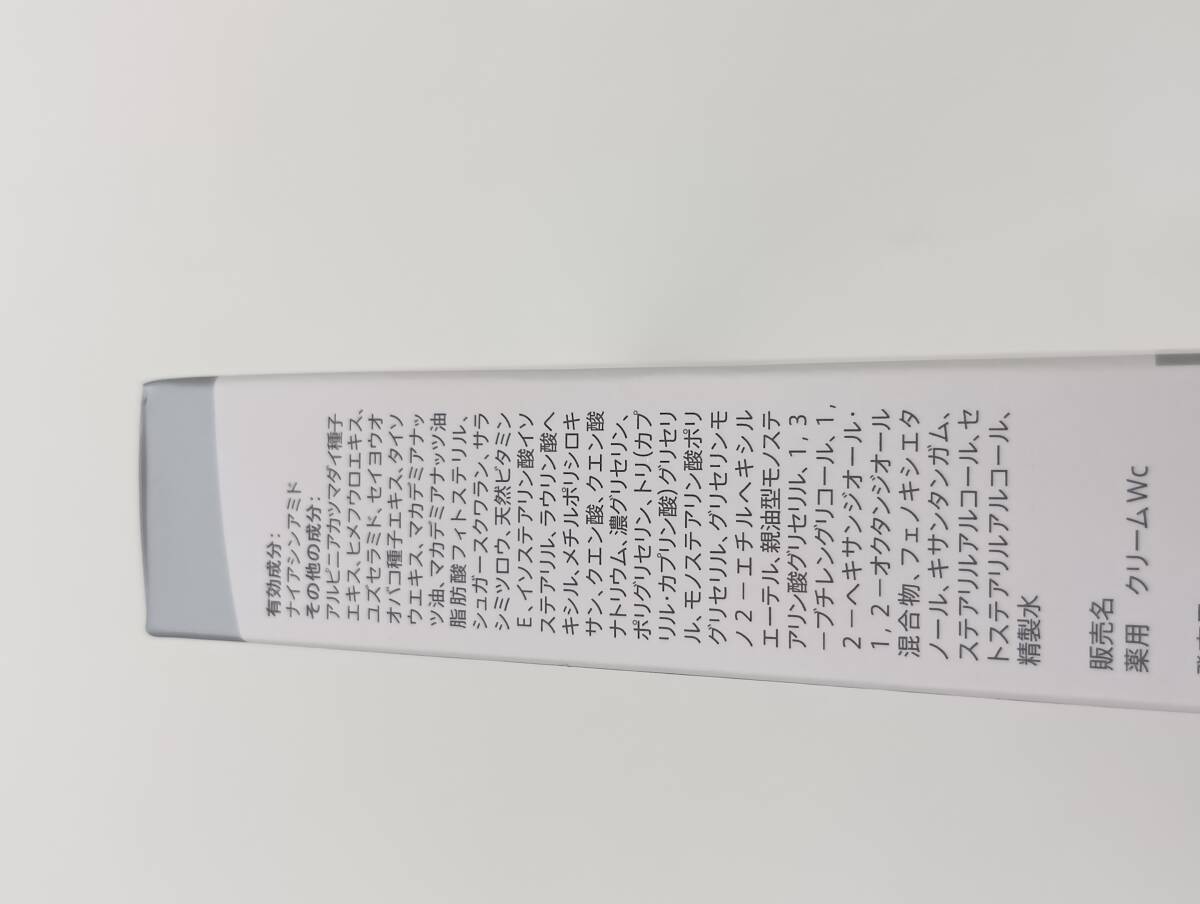 有効成分:
ナイアシンアミド
その他の成分:
アルピニアカツマダイ種子
エキス、ヒメフウロエキス、
ユズセラミド、セイヨウオ
オバコ種子エキス、タイソ
ウエキス、マカデミアナッ
ツ油、マカデミアナッツ油
脂肪酸フィトステリル、
シュガースクワラン、サラ
シミツロウ、天然ビタミン
E、イソステアリン酸イソ
ステアリル、ラウリン酸ヘ
キシル、メチルポリシロキ
サン、クエン酸、クエン酸
ナトリウム、濃グリセリン、
ポリグリセリン、トリ(カプ
リリル・カプリン酸)グリセリ
ル、モノステアリン酸ポリ
グリセリル、グリセリンモ
ノ2－エチルヘキシル
エーテル、親油型モノステ
アリン酸グリセリル、1,3
－ブチレングリコール、1,
2－ヘキサンジオール・
1,2－オクタンジオール
混合物、フェノキシエタ
ノール、キサンタンガム、
ステアリルアルコール、セ
トステアリルアルコール、
精製水
販売名
薬用 クリームWc